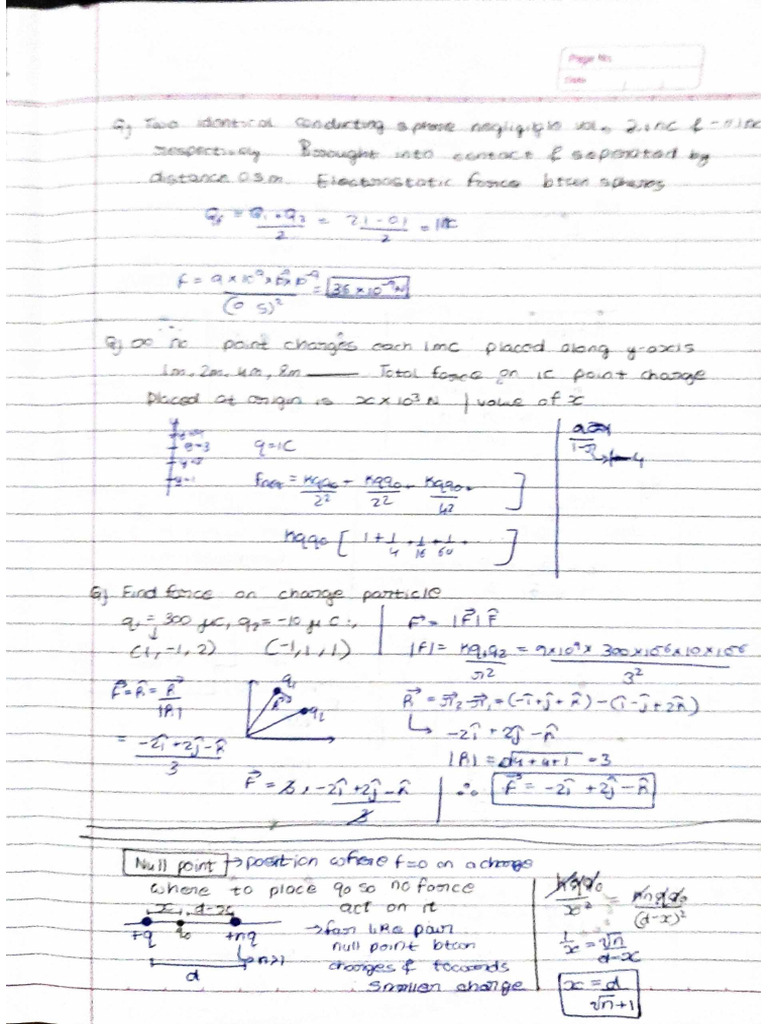 Page No.
Date
Q) Two identical conducting sphere negligible vol, 2.1nC & -0.1nC
respectively Brought into contact & separated by
distance 0.5m. Electrostatic force btwn spheres
= Q₁+Q₂/2 = 2.1-0.1/2 = 1nC
F = 9×10⁹×10⁻⁹×10⁻⁹/(0.5)² = 36×10⁻⁹N
Q) ∞ no point charges each 1mC placed along y-axis
1m, 2m, 4m, 8m Total force on 1C point charge
Placed at origin is x×10³N | value of x
q=1C
Fnet = kqq₀/2² + kqq₀/22 + kqq₀/42 ]
kqq₀ [ 1+1/4+1/16+1/64+ ]
Q) Find force on charge particle
q₁ = 300 μC, q₂ = -10 μC
(1,-1,2) (-1,1,1)
F⃗ = |F⃗| F̂
|F| = kq₁q₂/r² = 9×10⁹×300×10⁻⁶×10×10⁻⁶/3²
F̂=R̂=R⃗/|R|
= -2î+2ĵ-k̂/3
q₁
q₂
R⃗ = r⃗₂-r⃗₁ = (-î+ĵ+k̂)-(î-ĵ+2k̂)
-2î+2ĵ-k̂
|R| = √4+4+1 = 3
F⃗ = 3 × -2î+2ĵ-k̂/3
∴ F⃗ = -2î+2ĵ-k̂
Null point → position where f=0 on a charge
where to place q₀ so no force
act on it
x d-x
+q q₀ +nq
n>1
d
→ for like pair
null point btwn
charges & towards
smaller charge
kqq₀/x² = knqq₀/(d-x)²
1/x = √n/d-x
x = d/√n+1